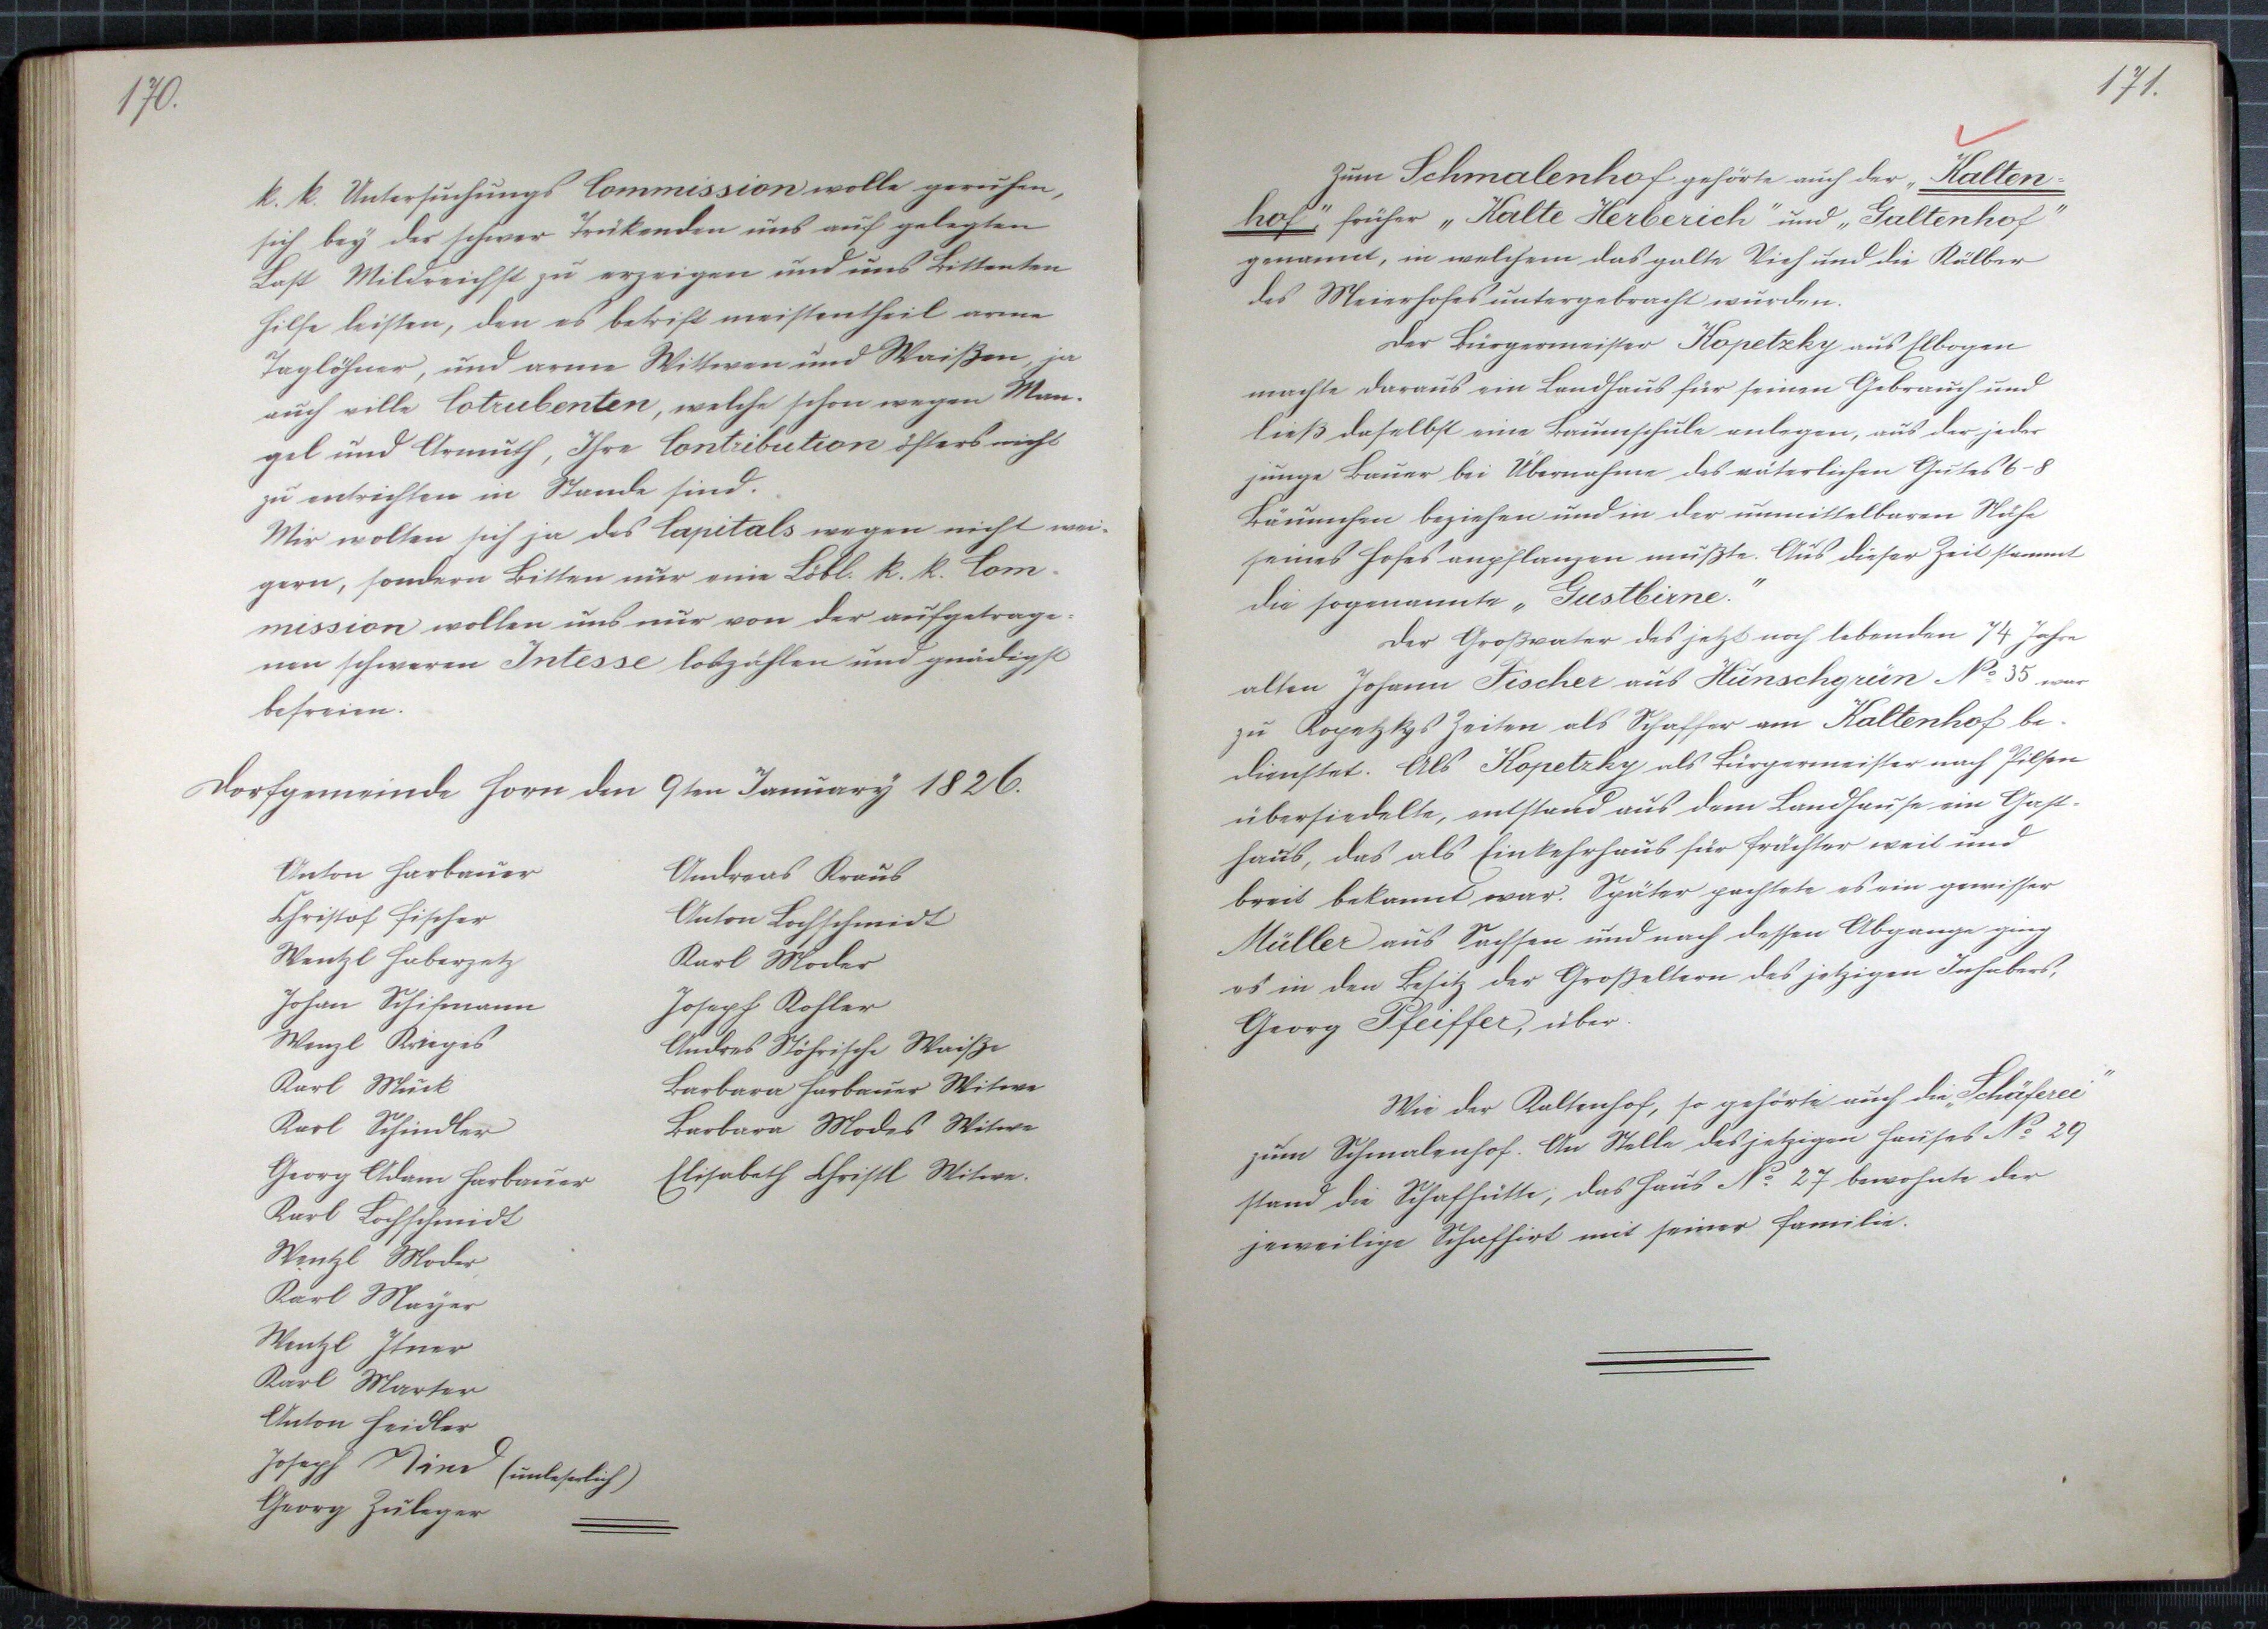 170.
k. k. Untersuchungs Commission wolle geruhen,
sich bey der schwer Trükenden uns auf gelegten
Last Mildreichst zu erzeigen und uns Bittenten
Hilfe leisten, den es betrift meistentheil arme
Taglöhner, und arme Wittwen und Waißen, ja
auch ville Cotrubenten, welche schon wegen Man-
gel und Armuth, Ihre Contribution öfters nicht
zu entrichten in Stande sind.
Wir wolten sich ja des Capitals wegen nicht wei-
gern, sondern Bitten nur eine Löbl. k. k. Com-
mission wollen uns nur von der aufgetrage-
nen schweren Intesse loszählen und gnädigst
befreien.
Dorfgemeinde Horn den 9ten January 1826.
Anton Harbauer
Christof Fischer
Wentzl Haberzetz
Johan Schifmann
Wenzl Krieges
Karl Mück
Karl Schindler
Georg Adam Harbauer
Karl Lochschmidt
Wentzl Moder
Karl Mayer
Wentzl Itner
Karl Marter
Anton Heidler
Joseph (unleserlich)
Georg Zuleger
Andreas Kraus
Anton Lochschmidt
Karl Moder
Joseph Kohler
Andres Stöhrische Waiße
Barbara Harbauer Witwe
Barbara Modes Witwe
Elisabeth Christl Witwe.
171.
Zum Schmalenhof gehörte auch der „Kalten-
hof", früher „Kalte Herberich" und „Galtenhof"
genannt, in welchem das galte Vieh und die Kälber
des Meierhofes untergebracht wurden.
Der Bürgermeister Kopetzky aus Elbogen
machte daraus ein Landhaus für seinen Gebrauch und
ließ daselbst eine Baumschule anlegen, aus der jeder
junge Bauer bei Übernahme des väterlichen Gutes 6-8
Bäumchen beziehen und in der unmittelbaren Nähe
seines Hofes anpflanzen mußte. Aus dieser Zeit stammt
die sogenannte „Gustbirne."
Der Großvater des jetzt noch lebenden 74 Jahre
alten Johann Fischer aus Hünschgrün No 35 war
zu Kopetzkys Zeiten als Schaffer am Kaltenhof be-
dienstet. Als Kopetzky als Bürgermeister nach Pilsen
übersiedelte, entstand aus dem Landhause ein Gast-
haus, das als Einkehrhaus für Frächter weit und
breit bekannt war. Später pachtete es ein gewisser
Müller aus Sachsen und nach dessen Abgange ging
es in den Besitz der Großeltern des jetzigen Inhabers,
Georg Pfeiffer, über.
Wie der Kaltenhof, so gehörte auch die „Schäferei"
zum Schmalenhof. An Stelle des jetzigen Hauses No 29
stand die Schafhütte, das Haus No 27 bewohnte der
jeweilige Schafhirt mit seiner Familie.